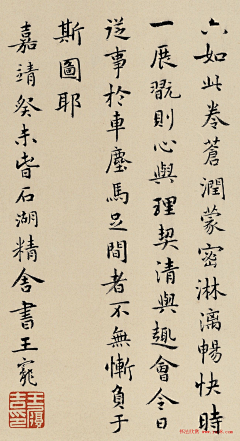 六如此卷蒼潤蒙密淋漓暢快時
一展翫則心與理契清與趣會今日
從事於車塵馬足間者不無慚負于
斯圖耶
嘉靖癸未皆石湖精舍書王寵